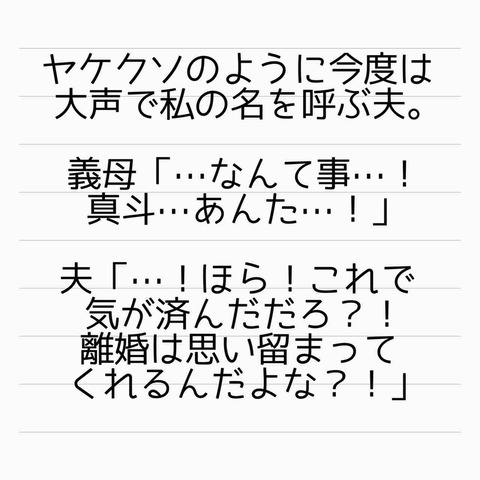 ヤケクソのように今度は
大声で私の名を呼ぶ夫。
義母「…なんて事…！
真斗…あんた…！」
夫「…！ほら！これで
気が済んだだろ？！
離婚は思い留まって
くれるんだよな？！」